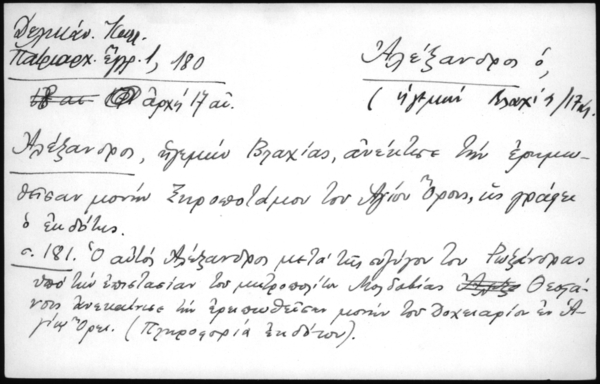 Δελικάν. Καλ.
Πατριαρχ. ἔγγρ. 1, 180
ἀρχή 17 αἰ.
Ἀλέξανδρος ὁ,
(ἡγεμών Βλαχίας/17 αι.
Ἀλέξανδρος, ἡγεμών Βλαχίας, ἀνέκτισε τὴν ἐρημω-
θεῖσαν μονήν Ξηροποτάμου του Ἁγίου Ὄρους, ὡς γράφει
ὁ ἐκδότης.
σ. 181. Ὁ αὐτός Ἀλέξανδρος μετά τῆς συζύγου του Ρωξάνδρας
υπό τὴν ἐπιστασίαν του μητροπολίτου Μολδαβίας Θεοφά-
νους ἀνεκαίνισε τὴν ἐρημωθεῖσαν μονήν του Δοχειαρίου ἐν Ἁ-
γίῳ Ὄρει. (Πληροφορία ἐκδότου).